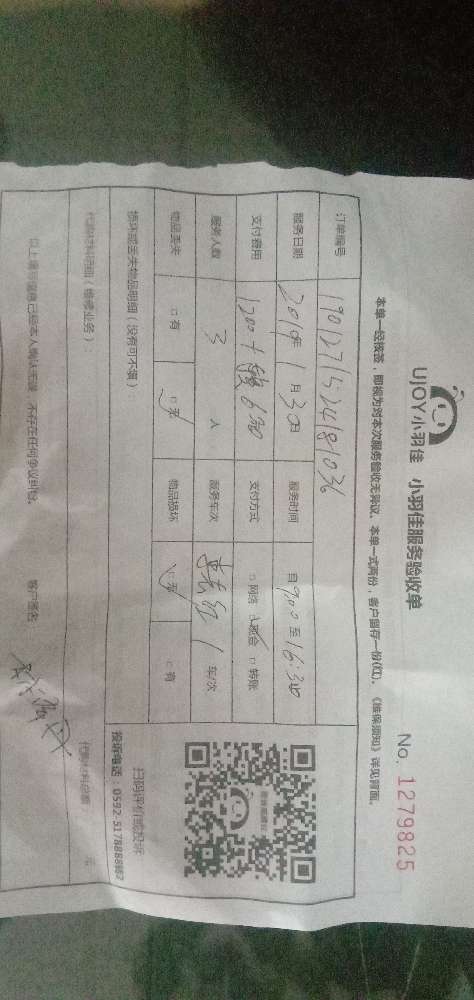 UJOY小羽佳 小羽佳服务验收单
No. 1279825
本单一经核签，即视为对本次服务验收无异议。本单一式两份，客户留存一份(红)，《维保须知》详见背面。
订单编号 1901271524181036
服务日期 2019年 1月30日 服务时间 自9:00至16:30
支付费用 1200+ 630 支付方式 □网络 □现金 □转账
服务人数 3 人 服务车次 1 车/次
物品丢失 □有 □无 物品损坏 □无 □有
损坏或丢失物品明细（没有可不填）
代购材料明细（维修业务）：
扫码评价或投诉
投诉电话：0592-5178888转7
以上填写信息已经本人确认无误，不存在任何争议纠纷。 客户签名